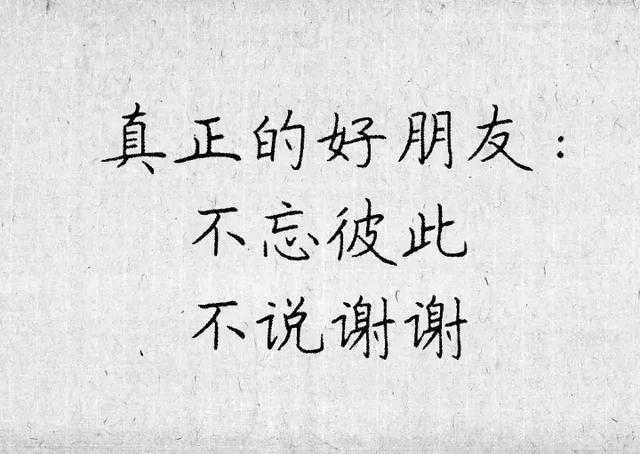 真正的好朋友：
不忘彼此
不说谢谢